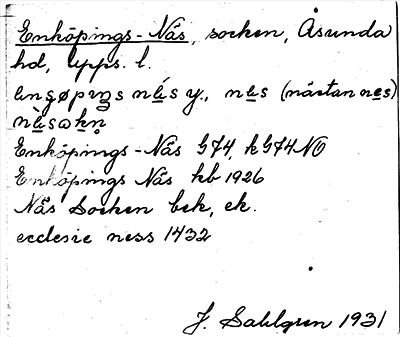 Enköpings-Näs, socken, Åsunda
hd, Upps. l.
næs (nästan nes)
Enköpings-Näs G74, kG74NO
Enköpings Näs kb 1926
Näs Socken bek, ek.
ecclesie ness 1432
J. Sahlgren 1931